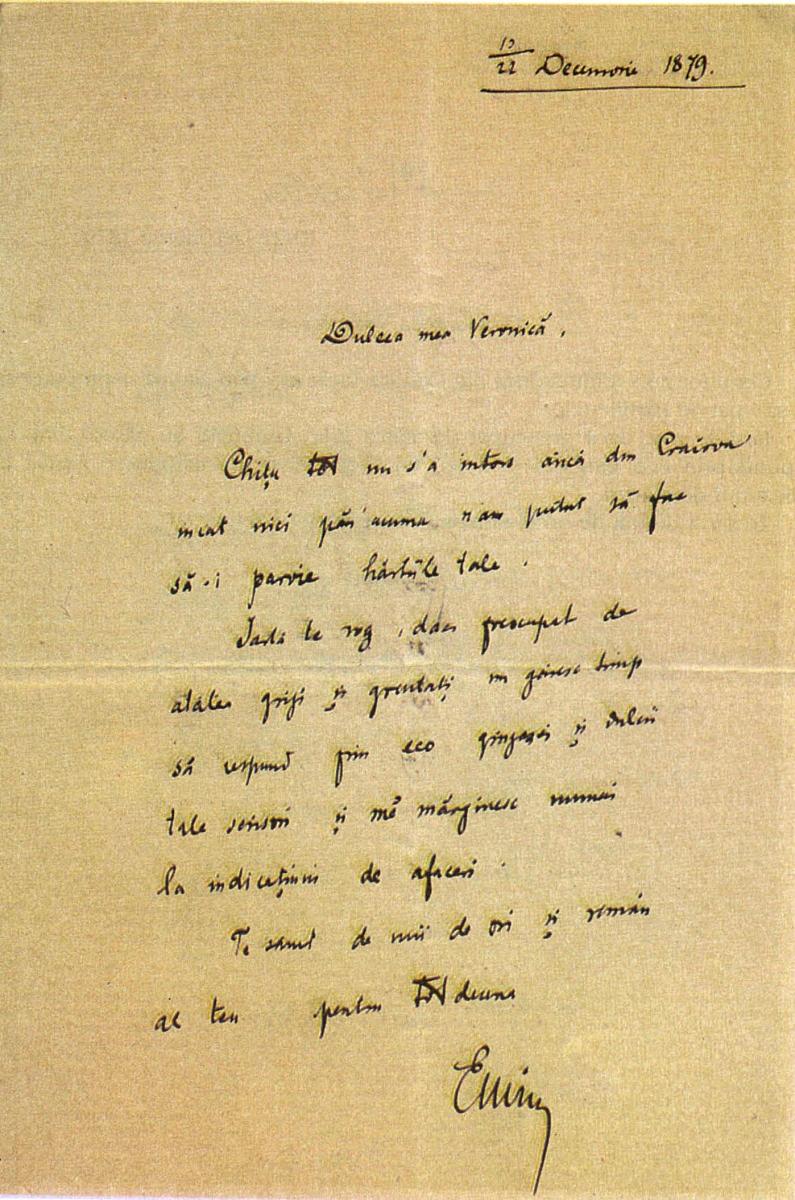 10/22 Decemvrie 1879.
Dulcea mea Veronică,
Chițu tot nu s'a intors ancă din Craiova
incat nici păn'acuma n'am putut să fac
să-i parvie hărtiile tale.
Iartă te rog, daca preocupat de
atâtea griji și greutăți nu găsesc timp
să respund prin eco gingașei și dulcii
tale scrisori și mĕ mărginesc numai
la indicațiuni de afaceri.
Te sarut de mii de ori și remân
al teu pentru totdeuna
Emin